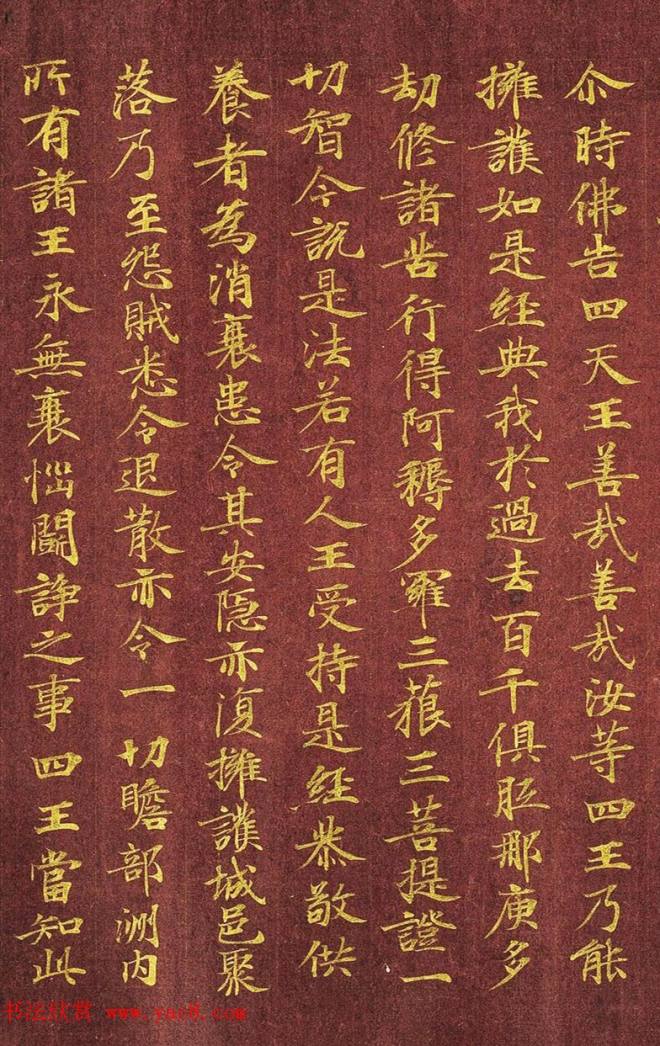 尒時佛告四天王善㢤善㢤汝等四王乃能
擁護如是經典我於過去百千俱胝那庾多
劫修諸苦行得阿耨多羅三藐三菩提證一
切智今說是法若有人王受持是經恭敬供
養者為消襄患令其安隐亦復擁護城邑聚
落乃至怨賊悉令退散亦令一切贍部洲内
所有諸王永無襄惱鬪諍之事四王當知此
书法欣赏 www.yac8.com